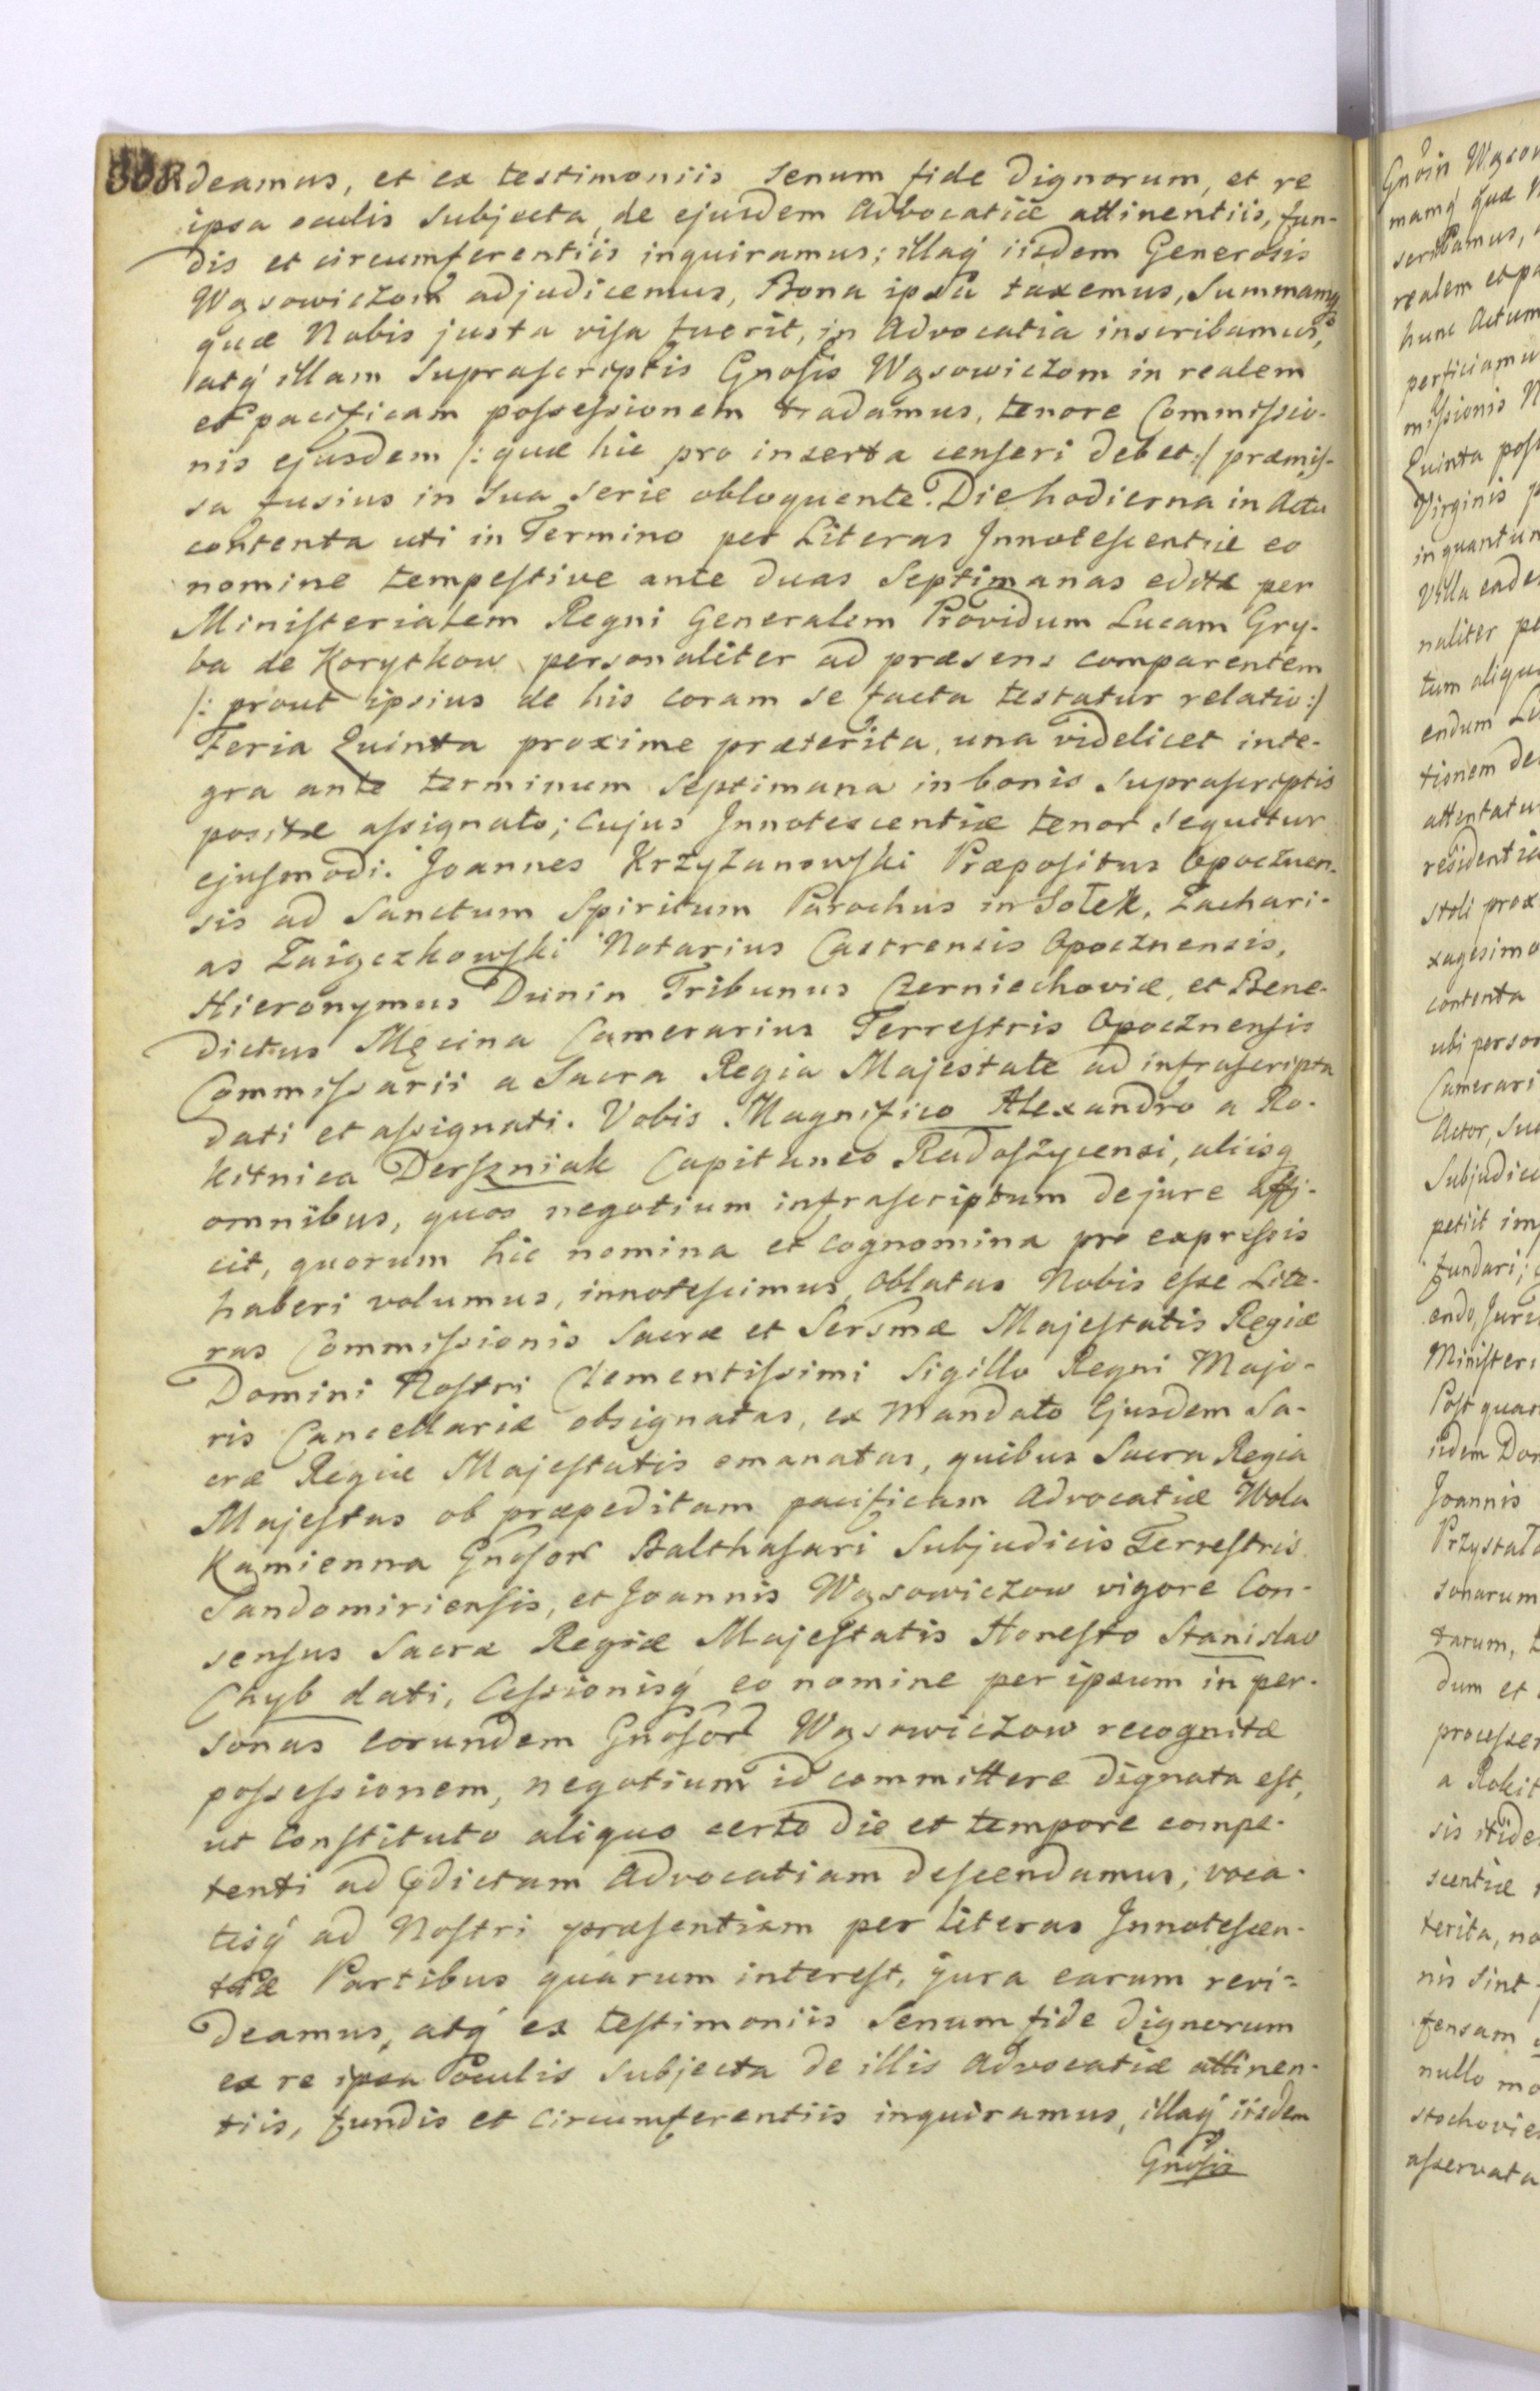 308
deamus, et ex testimoniis senum fide dignorum, et re
ipsa oculis subjecta, de ejusdem Advocatiæ attinentiis, fun-
dis et circumferentiis inquiramus; illaq́ iisdem Generosis
Wąsowiczom adjudicemus, Bona ipsa taxemus, Summamq́
quæ Nobis justa visa fuerit, in Advocatia inscribamus,
atq́ illam suprascriptis Gnosis Wąsowiczom in realem
et pacificam possessionem tradamus, tenore Commissio-
nis ejusdem /: quæ hic pro inserta censeri debet :/ præmis-
sa fusius in sua serie obloquente. Die hodierna in Actu
contenta uti in Termino per Literas Innotescentiæ eo
nomine tempestive ante duas Septimanas editæ per
Ministerialem Regni Generalem Providum Lucam Gry-
ba de Korytkow personaliter ad præsens comparentem
/: prout ipsius de his coram se facta testatur relatio :/
Feria Quinta proxime præterita, una videlicet inte-
gra ante terminum Septimana in bonis suprascriptis
positæ assignato; cujus Innotescentiæ tenor sequitur
ejusmodi. Joannes Krzyżanowski Præpositus Opocznen-
sis ad Sanctum Spiritum Parochus in Sołek, Zachari-
as Zaigczkowski Notarius Castrensis Opocznensis,
Hieronymus Dunin Tribunus Czerniechoviæ, et Bene-
dictus Męcina Camerarius Terrestris Opocznensis
Commissarii a Sacra Regia Majestate ad infrascripta
dati et assignati. Vobis Magnifico Alexandro a Ro-
kitnica Derszniak Capitaneo Radoszycensi, aliisq
omnibus, quos negotium infrascriptum de jure affi-
cit, quorum hic nomina et cognomina pro expressis
haberi volumus, innotescimus, oblatas Nobis esse Lite-
ras Commissionis Sacræ et Sersmæ Majestatis Regiæ
Domini Nostri Clementissimi Sigillo Regni Majo-
ris Cancellariæ obsignatas, ex Mandato Ejusdem Sa-
cræ Regiæ Majestatis emanatas, quibus Sacra Regia
Majestas ob præpeditam pacificam Advocatiæ Wola
Kamienna Gnosor Balthasari Subjudicis Terrestris
Sandomiriensis, et Joannis Wąsowiczow vigore Con-
sensus Sacræ Regiæ Majestatis Honesto Stanislao
Chyb dati, Cessionisq́ eo nomine per ipsum in per-
sonas eorundem Gnosor Wąsowiczow recognitæ
possessionem, negotium id committere dignata est,
ut Constituto aliquo certo die et tempore compe-
tenti ad pdictam Advocatiam descendamus, voca-
tisq́ ad Nostri præsentiam per literas Innotescen-
tiæ Partibus quarum interest, jura earum revi-
deamus, atq́ ex testimoniis Senum fide dignorum
ex re ipsa oculis subjecta de illis Advocatiæ attinen-
tiis, fundis et circumferentiis inquiramus, illaq́ iisdem
Gnosis